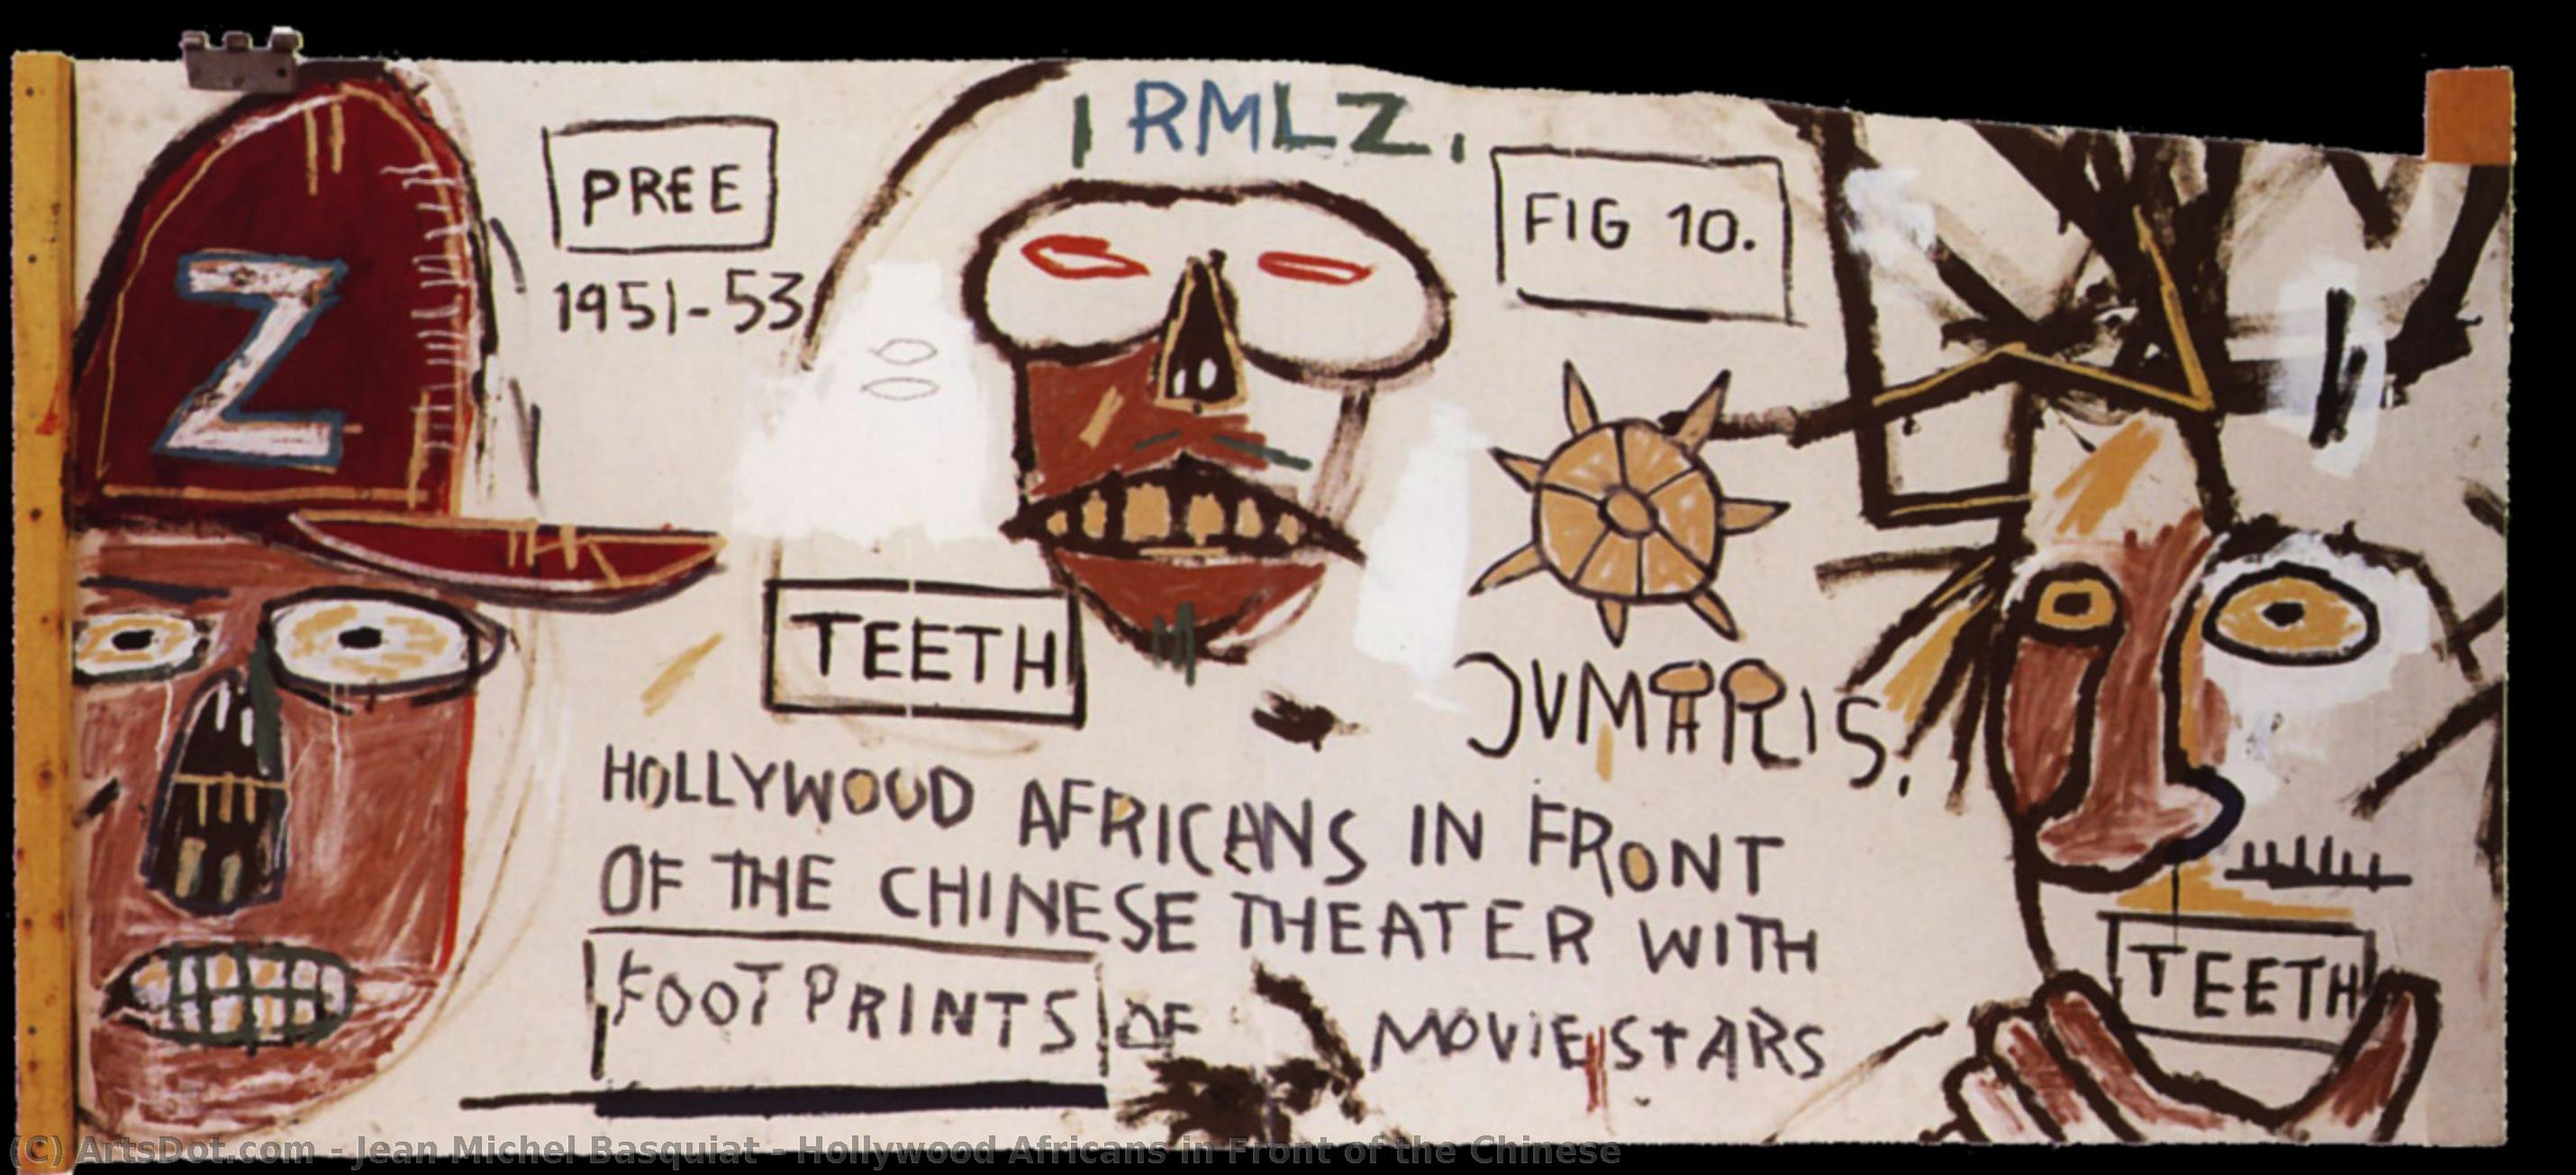 Z
PREE
1951-53
RMLZ.
FIG 10.
TEETH
JUMPRIS.
HOLLYWOOD AFRICANS IN FRONT
OF THE CHINESE THEATER WITH
FOOTPRINTS OF MOVIE STARS
TEETH
(C) ArtsDot.com - Jean Michel Basquiat - Hollywood Africans in Front of the Chinese